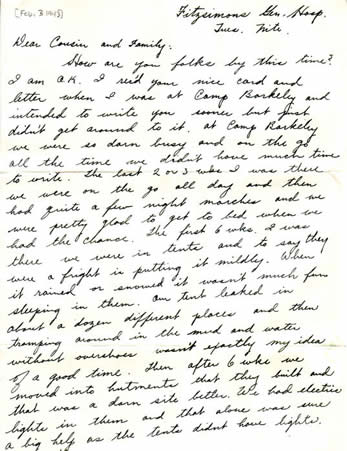 [Feb. 3 1943]
Fitzsimons Gen. Hosp.
Tues. Nite.
Dear Cousin and Family:
How are you folks by this time?
I am O.K. I rec'd your nice card and
letter when I was at Camp Barkeley and
intended to write you sooner but just
didn't get around to it. at Camp Barkeley
we were so darn busy and on the go
all the time we didn't have much time
to write. The last 2 or 3 wks I was there
we were on the go all day and then
had quite a few night marches and we
were pretty glad to get to bed when we
had the chance. The first 6 wks. I was
there we were in tents and to say they
were a fright is putting it mildly. When
it rained or snowed it wasn't much fun
sleeping in them. Our tent leaked in
about a dozen different places and then
tramping around in the mud and water
without overshoes wasn't exactly my idea
of a good time. Then after 6 wks we
moved into hutments that they built and
that was a darn site better. We had electric
lights in them and that alone was sure
a big help as the tents didnt have lights.